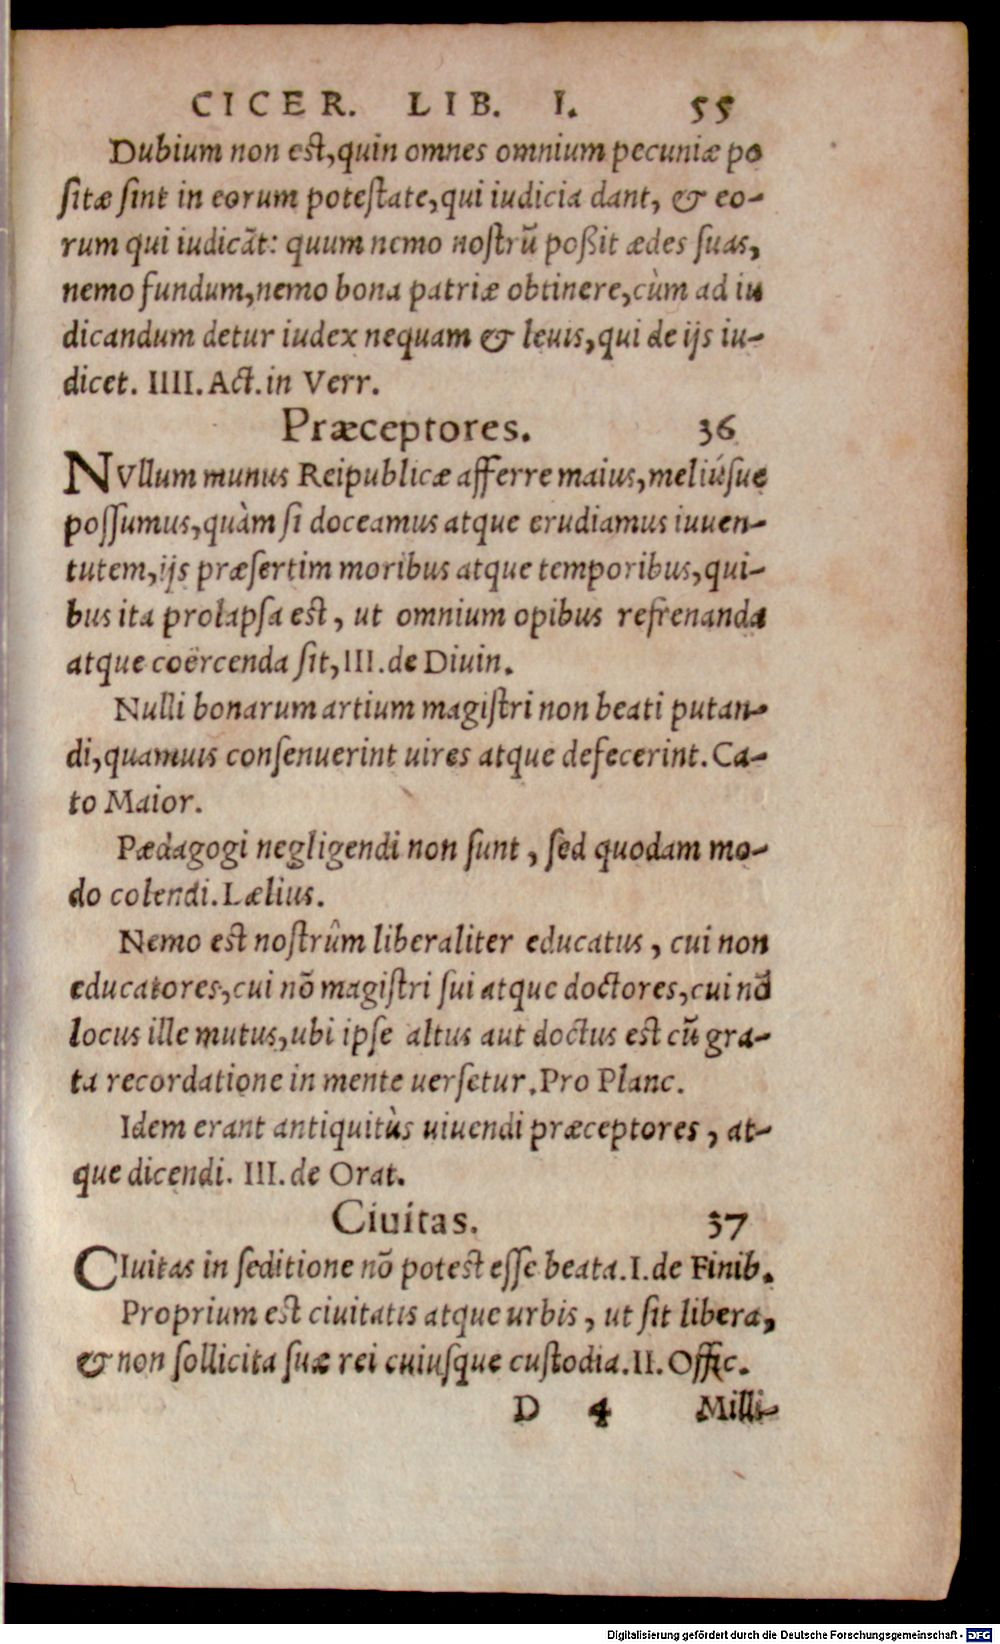 CICER. LIB. I. 55
Dubium non est, quin omnes omnium pecuniæ po
sitæ sint in eorum potestate, qui iudicia dant, & eo-
rum qui iudicāt: quum nemo nostrū poßit ædes suas,
nemo fundum, nemo bona patriæ obtinere, cùm ad iu
dicandum detur iudex nequam & leuis, qui de ijs iu-
dicet. IIII. Act. in Verr.
Præceptores. 36
NVllum munus Reipublicæ afferre maius, meliúsue
possumus, quàm si doceamus atque erudiamus iuuen-
tutem, ijs præsertim moribus atque temporibus, qui-
bus ita prolapsa est, ut omnium opibus refrenanda
atque coërcenda sit, III. de Diuin.
Nulli bonarum artium magistri non beati putan-
di, quamuis consenuerint uires atque defecerint. Ca-
to Maior.
Pædagogi negligendi non sunt, sed quodam mo-
do colendi. Lælius.
Nemo est nostrûm liberaliter educatus, cui non
educatores, cui nō magistri sui atque doctores, cui nō
locus ille mutus, ubi ipse altus aut doctus est cū gra-
ta recordatione in mente uersetur. Pro Planc.
Idem erant antiquitùs uiuendi præceptores, at-
que dicendi. III. de Orat.
Ciuitas. 37
CIuitas in seditione nō potest esse beata. I. de Finib.
Proprium est ciuitatis atque urbis, ut sit libera,
& non sollicita suæ rei cuiusque custodia. II. Offic.
D 4 Milli-
Digitalisierung gefördert durch die Deutsche Forschungsgemeinschaft - DFG